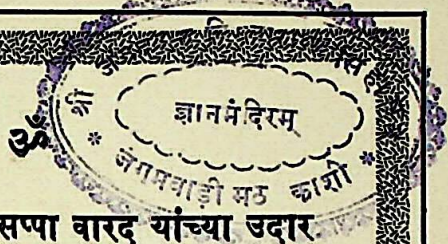 श्री ज
ज्ञानमंदिरम्
* जंगमवाड़ी मठ काशी *
ॐ
सप्पा वारद यांच्या उदार